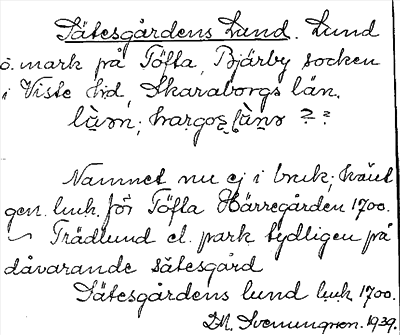 Sätesgårdens Lund. Lund
o. mark på Töfta, Bjärby socken
i Viste hd, Skaraborgs län.
Namnet nu ej i bruk;
gen. luk. för Töfta Härregården 1700.
Trädlund el. park tydligen på
dåvarande sätesgård
Sätesgårdens lund luk. 1700.
M. Svenungson. 1939.